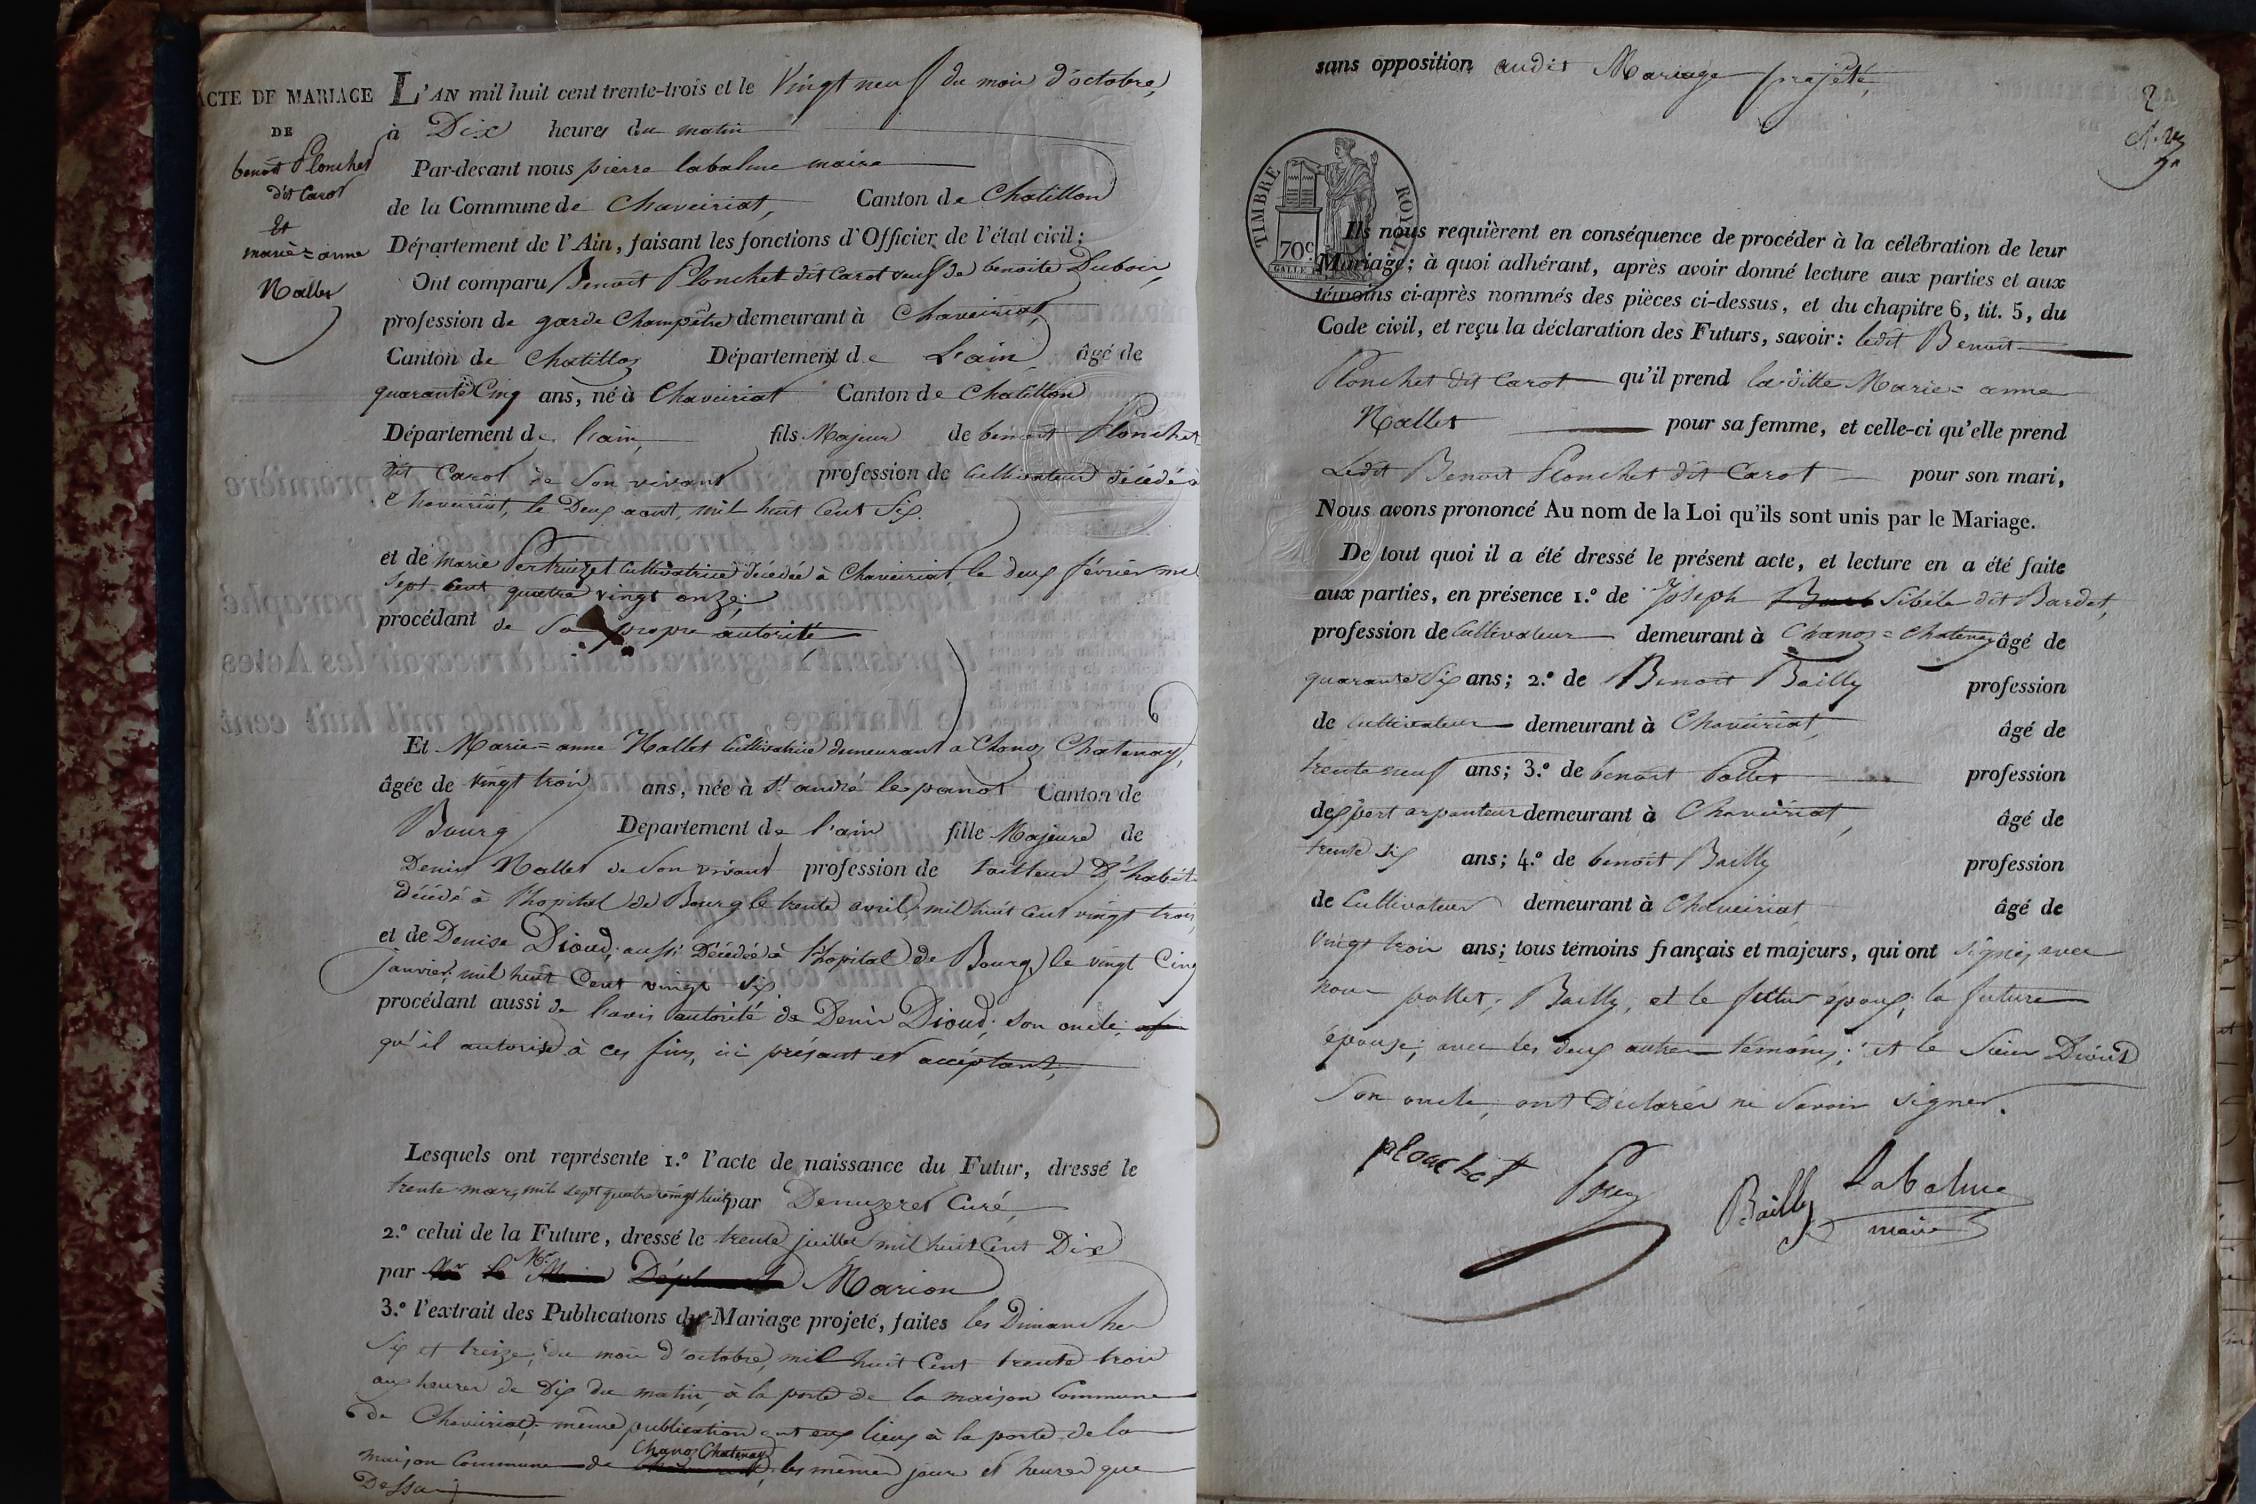 ACTE DE MARIAGE
DE
benoit Plonchet
dit Carot
Et
marie=anne
Nallet
L'AN mil huit cent trente-trois et le Vingt neuf du mois d'octobre,
à Dix heures du matin
Par-devant nous pierre labalme maire
de la Commune de Chaveiriat, Canton de Chatillon
Département de l'Ain, faisant les fonctions d'Officier de l'état civil;
Ont comparu Benoit Plonchet dit Carot veuf de benoite Dubois,
profession de garde Champêtre demeurant à Chaveiriat,
Canton de Chatillon Département de L'ain, âgé de
quarante Cinq ans, né à Chaveiriat Canton de Chatillon
Département de l'ain, fils Majeur de benoit Plonchet
dit Carot de Son vivant profession de Cultivateur décédé à
Chaveiriat, le Deux aout, mil huit Cent Six.
et de marie Pertuizet Cultivatrice décédée à Chaveiriat le deux février mil
Sept Cent quatre vingt onze;
procédant de Sa propre autorité
Et Marie=anne Nallet Cultivatrice demeurant à Chanoz Chatenay,
âgée de vingt trois ans, née à St. andré le panot Canton de
Bourg Département de l'ain fille Majeure de
Denis Nallet de Son vivant profession de tailleur D'habits
Décédé à l'hopital de Bourg le trente avril, mil huit Cent vingt trois,
et de Denise Dioud; aussi Décédée à l'hopital de Bourg, le vingt Cinq
janvier, mil huit Cent vingt Six
procédant aussi de l'avis autorité de Denis Dioud, Son oncle,
qu'il autorise à ces fins, ici présent et acceptant,
Lesquels ont représenté 1.º l'acte de naissance du Futur, dressé le
trente mars, mil sept quatre vingt huit par Denuzeret Curé,
2.º celui de la Future, dressé le trente juillet mil huit Cent Dix
par Mr Marion
3.º l'extrait des Publications du Mariage projeté, faites les Dimanches
Six et treize, du mois d'octobre, mil huit Cent trente trois
aux heures de Dix du matin, à la porte de la maison Commune
de Chaveiriat; même publication ont eux lieux à la porte de la
maison Commune de Chanoz Chatenay, les même jours et heures que
Dessus
sans opposition audit Mariage projeté,
2
TIMBRE ROYAL
70 c
Ils nous requièrent en conséquence de procéder à la célébration de leur
Mariage; à quoi adhérant, après avoir donné lecture aux parties et aux
témoins ci-après nommés des pièces ci-dessus, et du chapitre 6, tit. 5, du
Code civil, et reçu la déclaration des Futurs, savoir: ledit Benoit
Plonchet dit Carot qu'il prend la ditte Marie=anne
Nallet pour sa femme, et celle-ci qu'elle prend
Ledit Benoit Plonchet dit Carot pour son mari,
Nous avons prononcé Au nom de la Loi qu'ils sont unis par le Mariage.
De tout quoi il a été dressé le présent acte, et lecture en a été faite
aux parties, en présence 1.º de Joseph Sibéle dit Bardet,
profession de Cultivateur demeurant à Chanoz=Chatenay âgé de
quarante Six ans; 2.º de Benoit Bailly profession
de cultivateur demeurant à Chaveiriat, âgé de
trente neuf ans; 3.º de benoit Pollet profession
dexpert arpenteur demeurant à Chaveiriat, âgé de
trente six ans; 4.º de benoit Bailly profession
de Cultivateur demeurant à Chaveiriat âgé de
vingt trois ans; tous témoins français et majeurs, qui ont signés, avec
nous pollet, Bailly, et le futur époux; la future
épouse; avec les deux autres témoins; et le Sieur Dioud
Son oncle, ont Déclarés ne Savoir Signer.
plonchet
Bailly
Labalme
maire